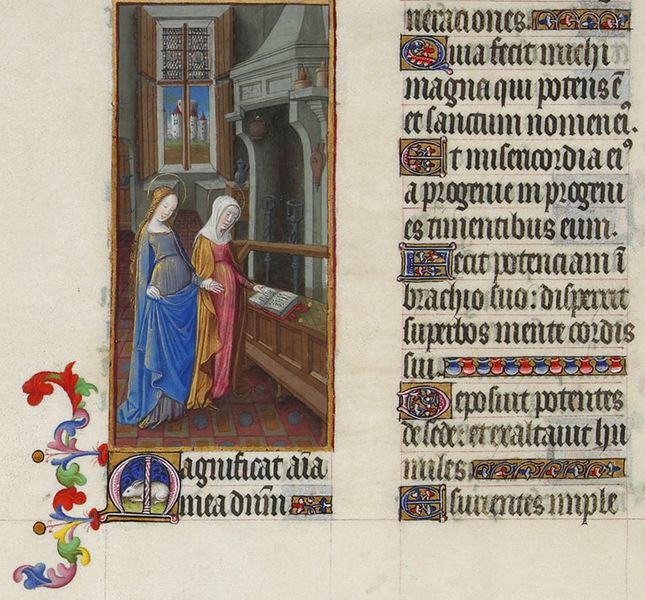 Magnificat aīa
mea dūm
neraciones.
Quia fecit michi
magna qui potens ē
et sanctum nomen eiꝰ.
Et misericordia eiꝰ
a progenie in progeni
es timentibus eum.
Fecit potenciam ī
brachio suo: dispersit
superbos mente cordis
sui.
Deposuit potentes
de sede: et exaltauit hu
miles.
Esurientes imple